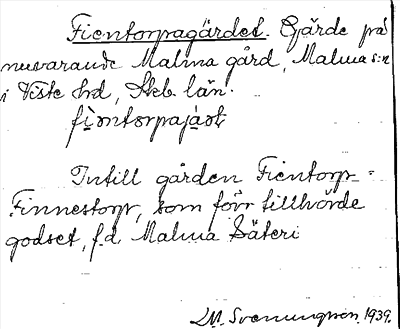 Fientorpagärdet. Gärde på
nuvarande Malma gård, Malma s:n
i Viste hd, Skb. län.
Intill gården Fientorp =
Finnestorp, som förr tillhörde
godset, f.d Malma Säteri
M. Svenungsson. 1939.